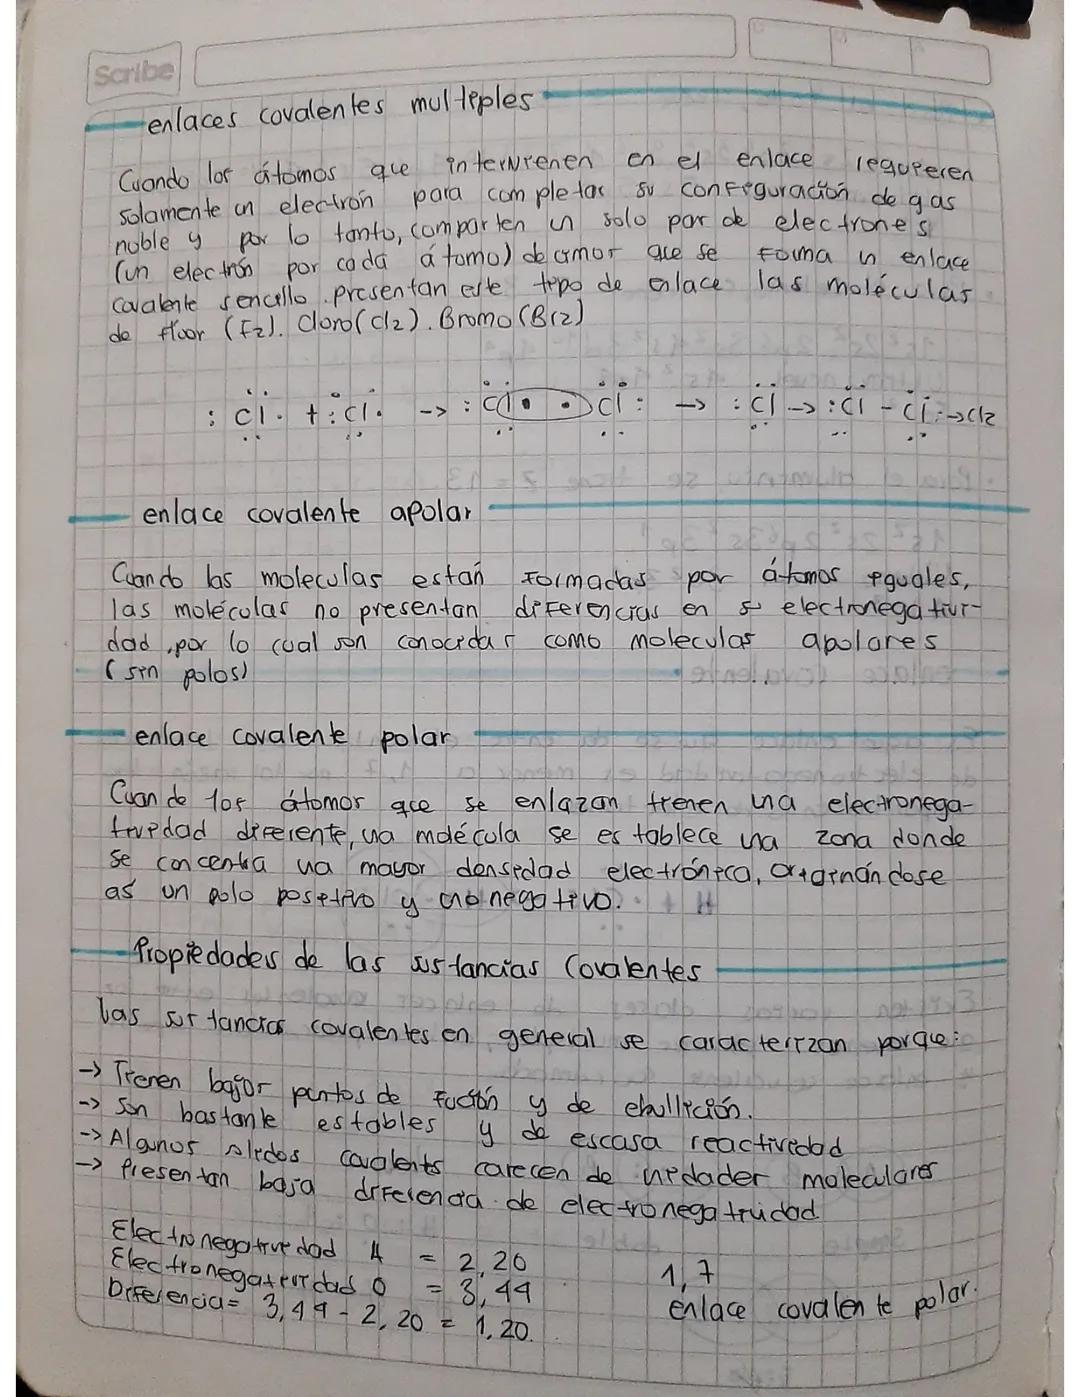 Scribe
enlaces covalentes multiples
Cuando los átomos que intervienen en el enlace requieren
solamente un electrón para completar su configuración de gas
noble y por lo tanto, comparten un solo par de electrones
(un electrón por cada átomo) decimos que se forma un enlace
covalente sencillo. presentan este tipo de enlace las moléculas
de fluor (F2). Cloro (Cl2). Bromo (Br2)
: Cl · + : Cl · -> : Cl · · Cl : -> : Cl -> : Cl - Cl : -> Cl2
enlace covalente apolar
Cuando las moleculas están formadas por átomos iguales,
las moléculas no presentan diferencias en su electronegativi-
dad, por lo cual son conocidas como moleculas apolares
(sin polos)
enlace covalente polar
Cuando los átomos que se enlazan tienen una electronega-
tividad diferente, una molécula se establece una zona donde
se concentra una mayor densidad electrónica, originándose
así un polo positivo y uno negativo.
Propiedades de las sustancias Covalentes
las sustancias covalentes en general se caracterizan porque:
-> Tienen bajos puntos de fución y de ebullición.
-> Son bastante estables y de escasa reactividad
-> Algunos solidos covalents carecen de unidader moleculares
-> Presentan baja diferencia de electronegatividad
Electronegatividad H = 2,20
Electronegatividad O = 3,44
Diferencia = 3,44 - 2,20 = 1,20.
1,7
enlace covalente polar.